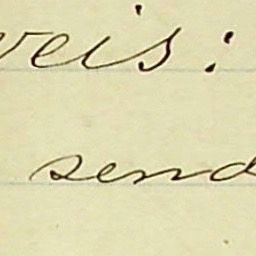 veis:
send